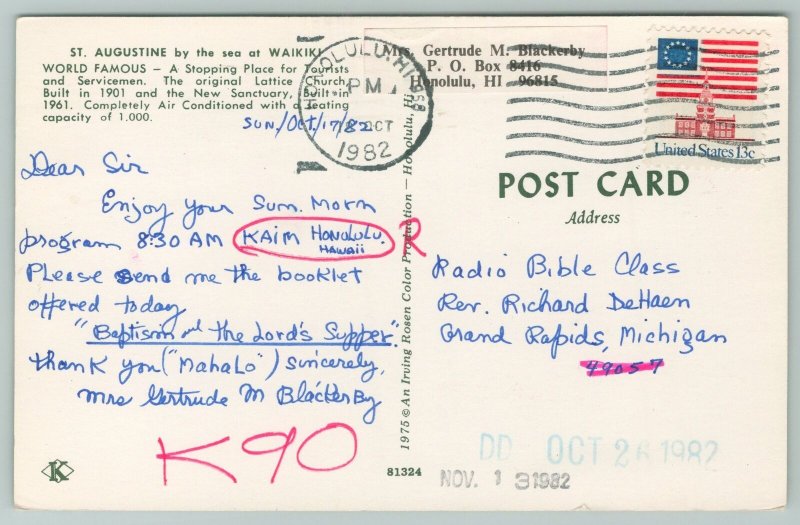 ST. AUGUSTINE by the sea at WAIKIKI
WORLD FAMOUS – A Stopping Place for Tourists
and Servicemen. The original Lattice Church,
Built in 1901 and the New Sanctuary, Built in
1961. Completely Air Conditioned with a seating
capacity of 1,000.
SUN/OCT/17/82
HONOLULU, HI 968
PM
OCT
1982
Mrs. Gertrude M. Blackerby
P. O. Box 8416
Honolulu, HI 96815
United States 13c
Dear Sir
Enjoy your Sun. Morn
program 8:30 AM KAIM HONOLULU.
HAWAII
R
Please send me the booklet
offered today
"Baptism and the Lord's Supper".
thank you ("Mahalo") sincerely,
Mrs Gertrude M Blackerby
K90
1975 © An Irving Rosen Color Production — Honolulu, Hi.
POST CARD
Address
Radio Bible Class
Rev. Richard DeHaen
Grand Rapids, Michigan
49057
K
81324
DD OCT 26 1982
NOV. 13 1982